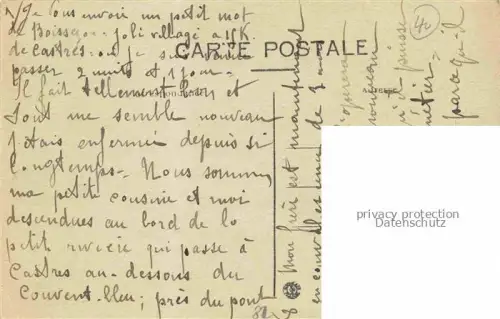 Je vous envoie un petit mot
de Boissezon - joli village à 15 K.
de Castres - où je suis venue
CARTE POSTALE
passer 2 nuits et 1 jour -
Il fait tellement bon et
tout me semble nouveau
J'étais enfermée depuis si
longtemps - Nous sommes
ma petite cousine et moi
descendues au bord de la
petite rivière qui passe à
Castres au-dessous du
Couvent-bleu; près du pont
Mon frère est maintenant
en de 3
qu'il puisse
métier -
parce qu'il
privacy protection
Datenschutz